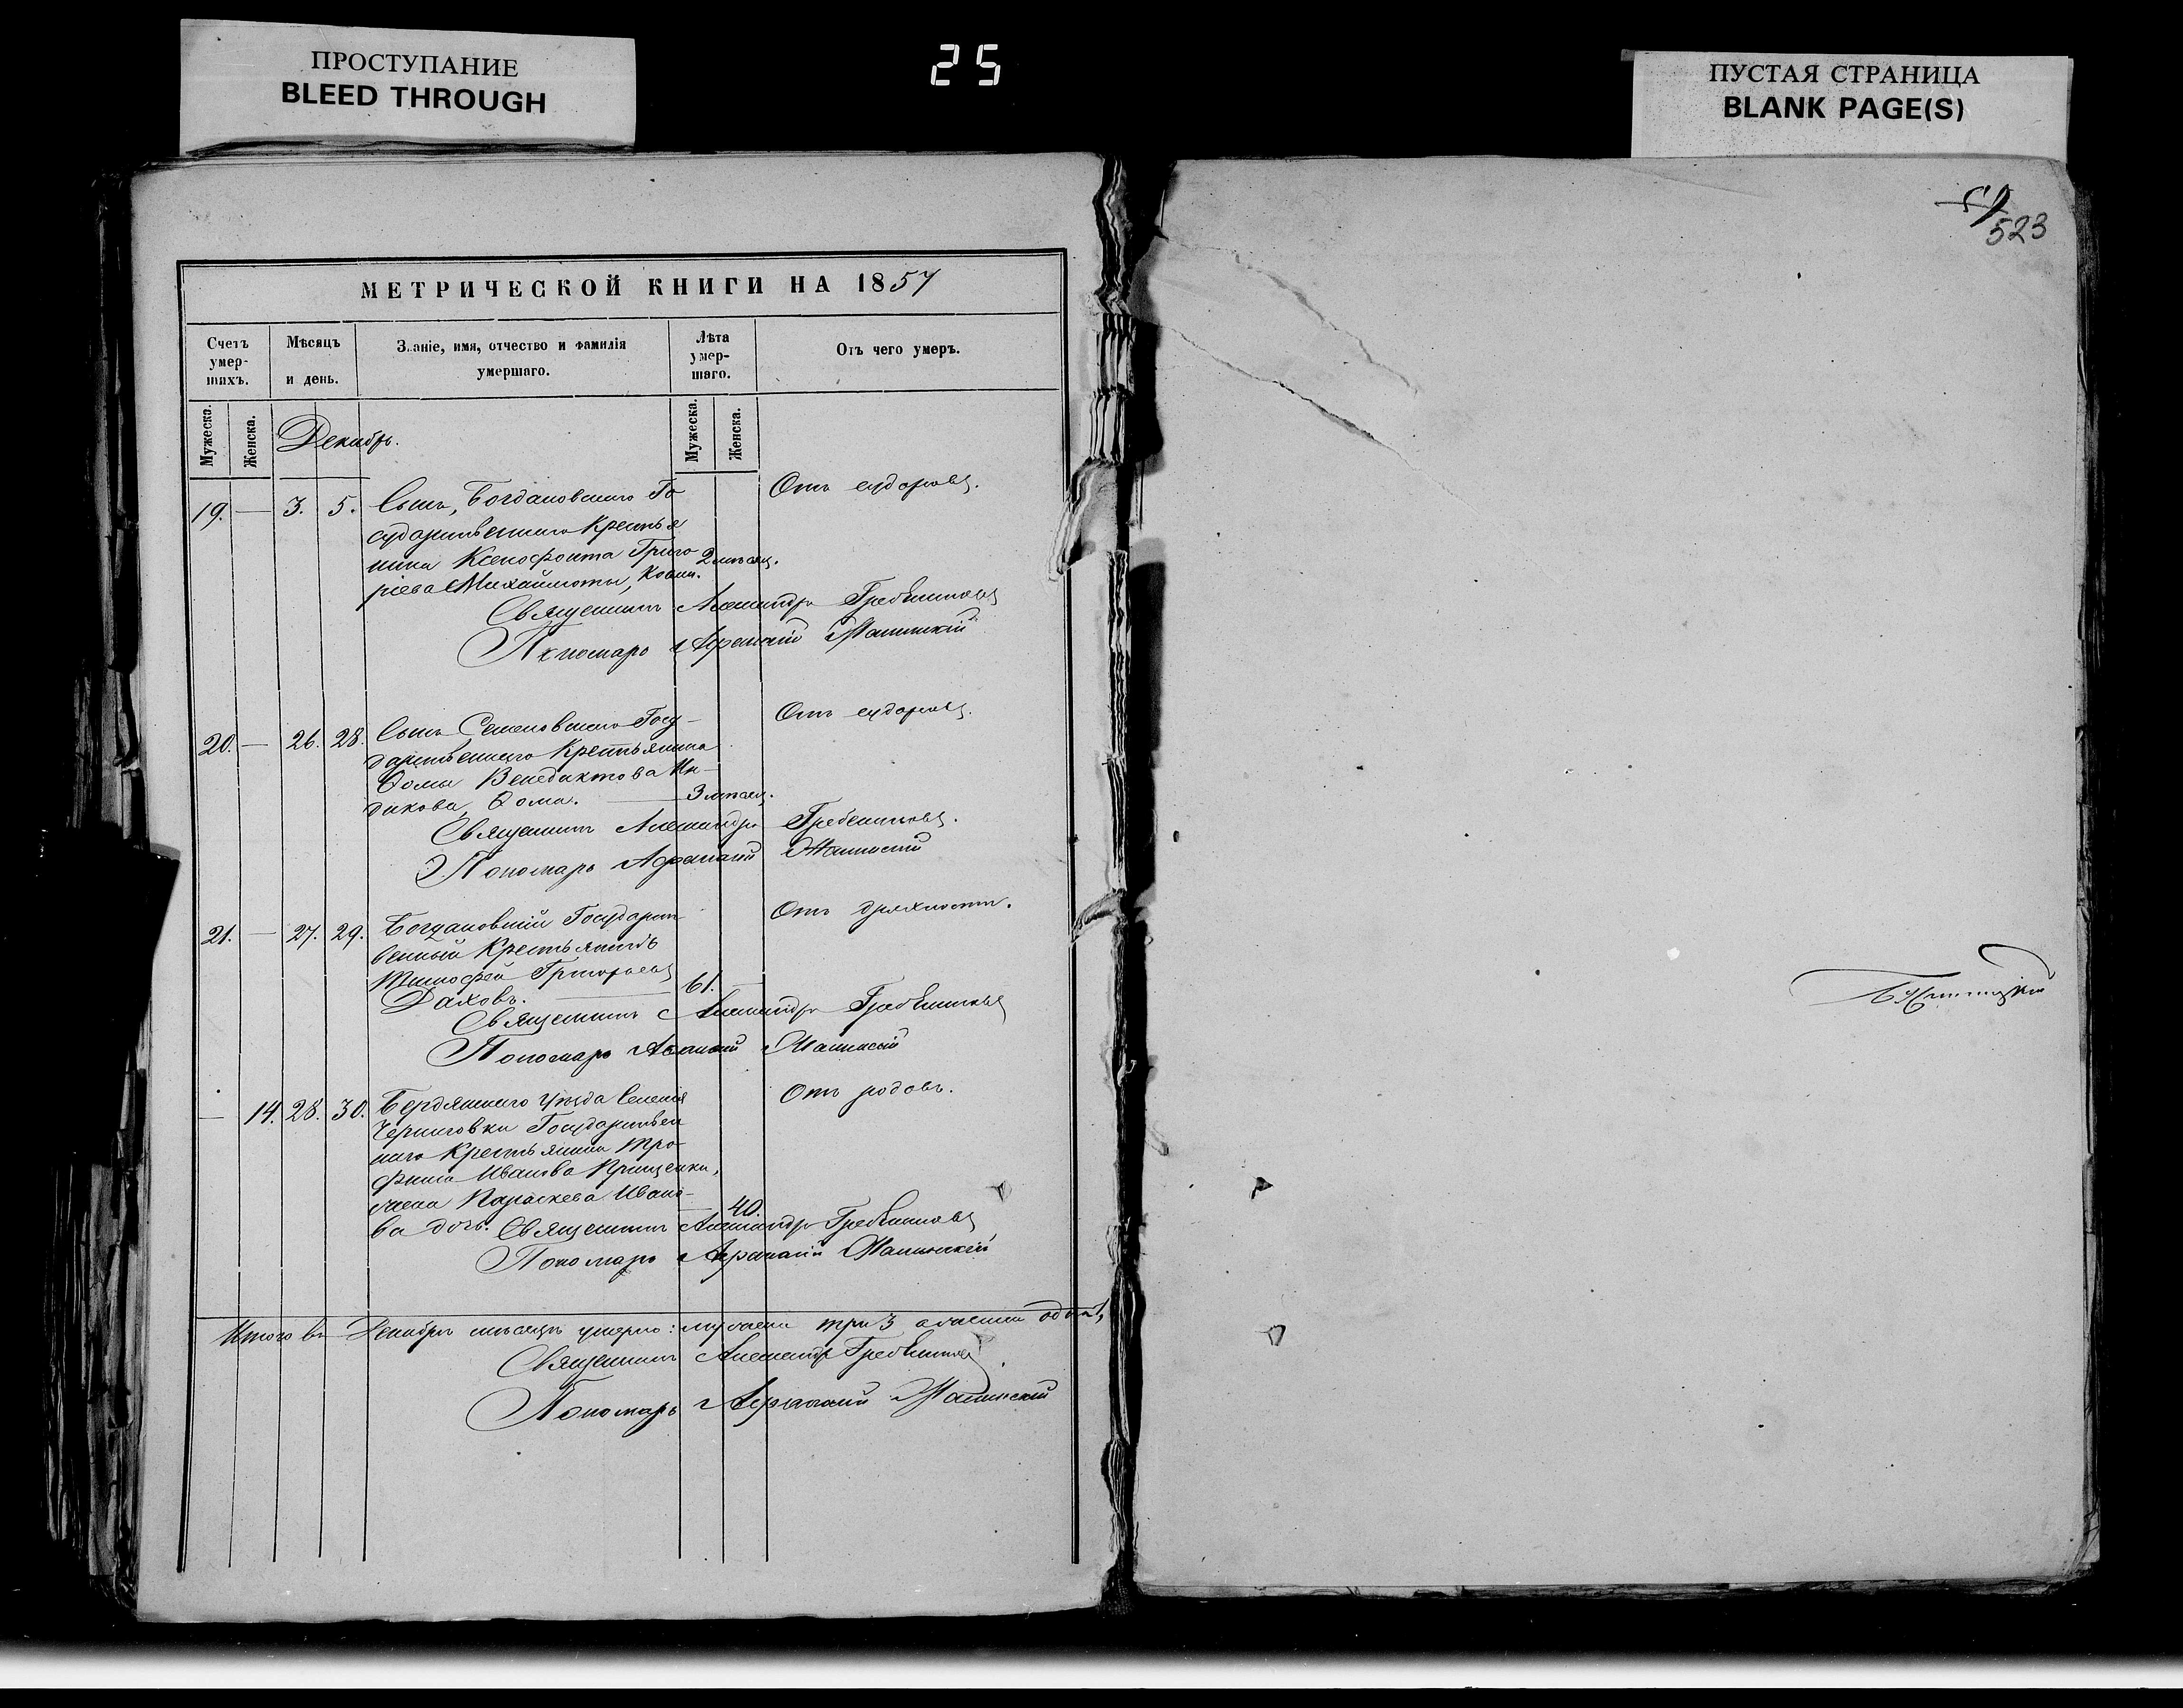 ПРОСТУПАНИЕ
BLEED THROUGH
25
ПУСТАЯ СТРАНИЦА
BLANK PAGE(S)
523
МЕТРИЧЕСКОЙ КНИГИ НА 1857
Счетъ умер-шихъ.
Мѣсяцъ и день.
Званіе, имя, отчество и фамилія умершаго.
Лѣта умер-шаго.
Отъ чего умеръ.
Мужеска.
Женска.
Мужеска.
Женска.
Декабрь.
19. — 3. 5. Сынъ, Богдановскаго Го
Отъ судорогъ.
сударственнаго Крестья
нина Ксенофонта Григо
2 мѣсяц.
ріева
Священникъ Александръ Гребенниковъ
Пономарь Афанасій
20. — 26. 28. Сынъ Семеновскаго Госу-
Отъ судорогъ.
дарственнаго Крестьянина
Ѳомы Венедиктова Ин-
дикова, Ѳома. 3 мѣсяц.
Священникъ Александръ Гребенниковъ.
Пономарь Афанасий
21. — 27. 29. Богдановскій Государст
Отъ дряхлости.
венный Крестьянинъ
Тимофей Григорьевъ
61.
Даховъ.
Священникъ Александръ Гребенниковъ
Пономарь Афанасий
— 14. 28. 30. Бердянскаго уѣзда Селенія
Отъ родовъ.
Черниговки Государствен
наго Крестьянина Тро
фима Иванова Прищенки,
жена Параскева Ивано-
40.
ва дочь. Священникъ Александръ Гребенниковъ
Пономарь Афанасій
Итого въ Декабрѣ мѣсяцѣ умерло: мужеска три 3 а женска одна 1,
Священникъ Александръ Гребенниковъ
Пономарь Афанасий